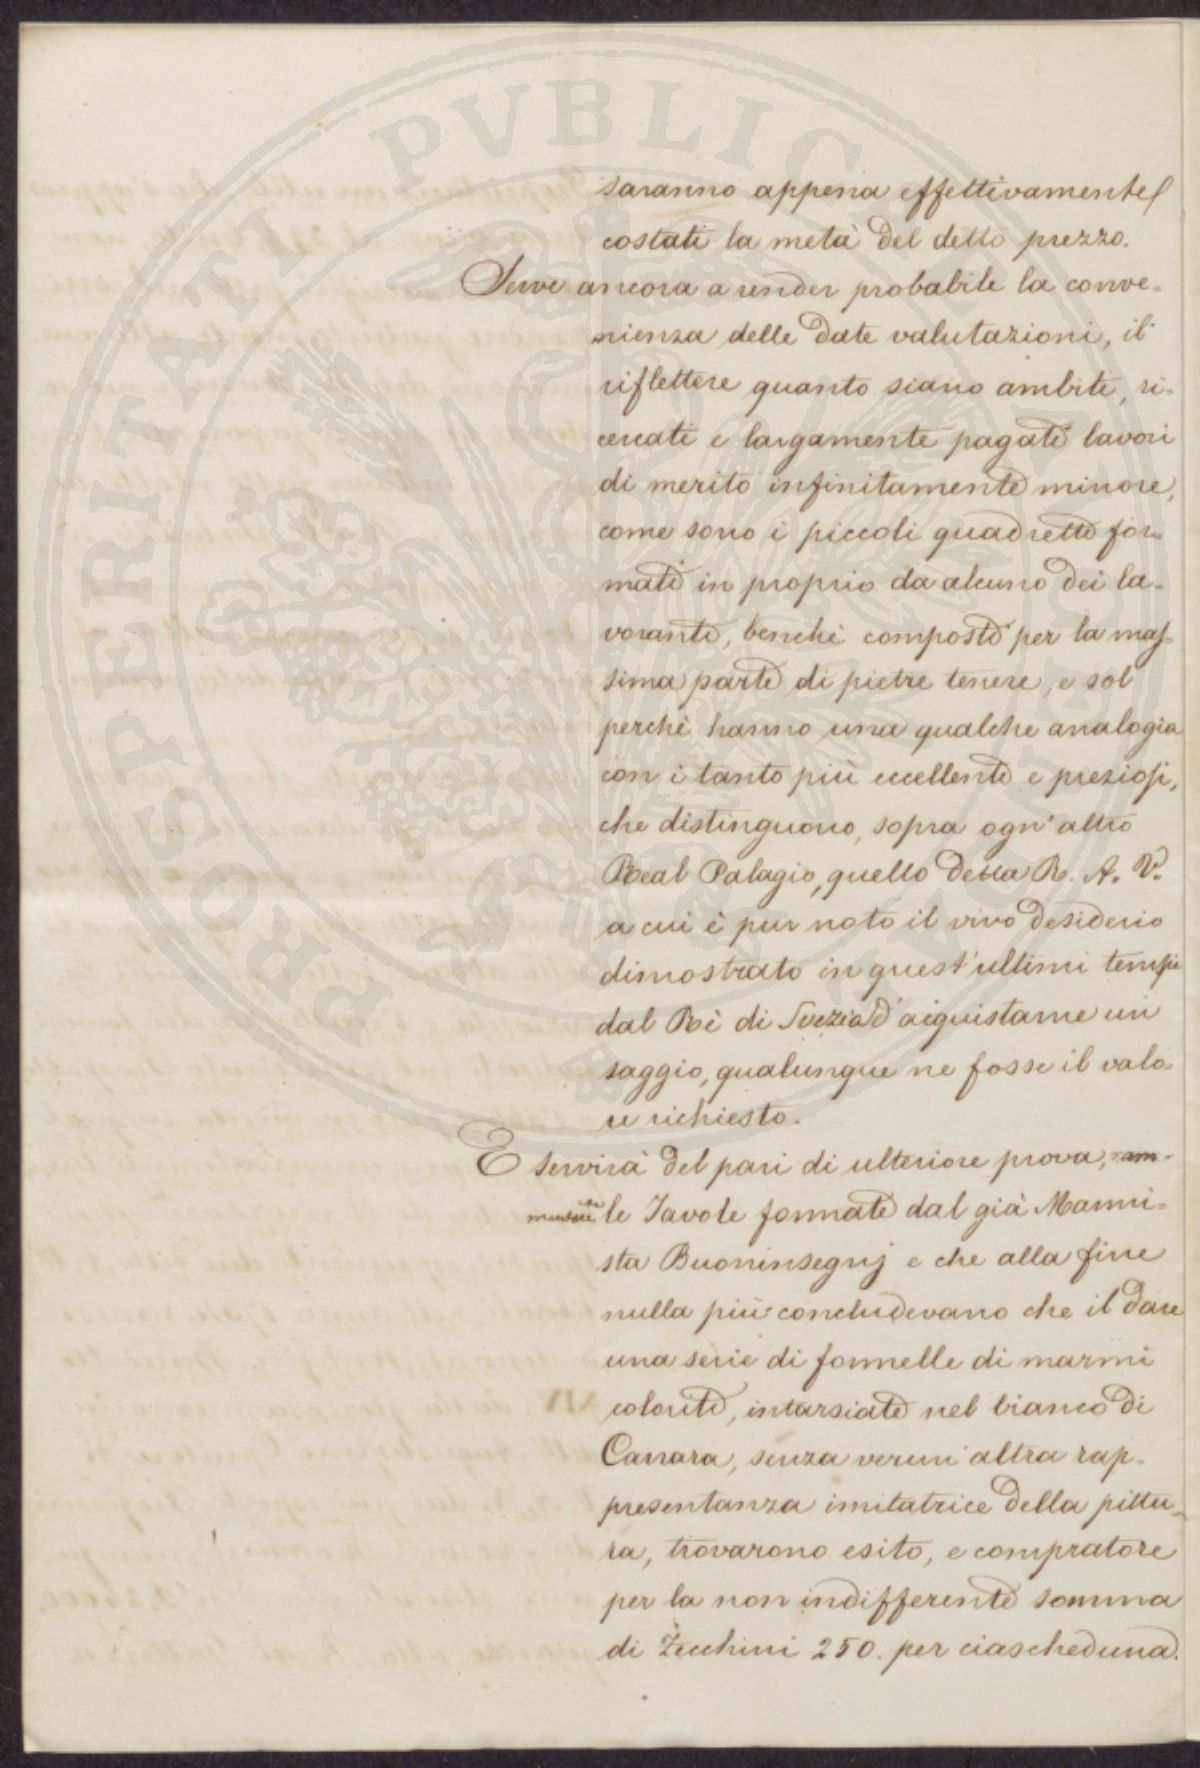 PROSPERITATI PUBLICAE AUGENDAE
saranno appena effettivamente
costati la metà del detto prezzo.
Serve ancora a render probabile la conve-
nienza delle date valutazioni, il
riflettere quanto siano ambiti, ri-
cercati e largamente pagati lavori
di merito infinitamente minore,
come sono i piccoli quadretti for-
mati in proprio da alcuno dei la-
voranti, benchè composti per la mas-
sima parte di pietre tenere, e sol
perchè hanno una qualche analogia
con i tanto più eccellenti e preziosi,
che distinguono, sopra ogn' altro
Real Palagio, quello della R. A. V.
a cui è pur noto il vivo desiderio
dimostrato in quest' ultimi tempi
dal Rè di Svezia d' acquistarne un
saggio, qualunque ne fosse il valo-
re richiesto.
E servirà del pari di ulteriore prova,
le Tavole formate dal già Marmi-
sta Buoninsegnj e che alla fine
nulla più concludevano che il dare
una serie di formelle di marmi
coloriti, intarsiate nel bianco di
Carrara, senza verun' altra rap-
presentanza imitatrice della pittu-
ra, trovarono esito, e compratore
per la non indifferente somma
di Zecchini 250. per ciascheduna.